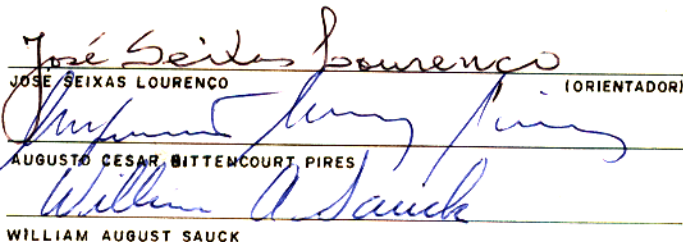 José Seixas Lourenço
JOSÉ SEIXAS LOURENÇO (ORIENTADOR)
AUGUSTO CESAR BITTENCOURT PIRES
William A. Sauck
WILLIAM AUGUST SAUCK